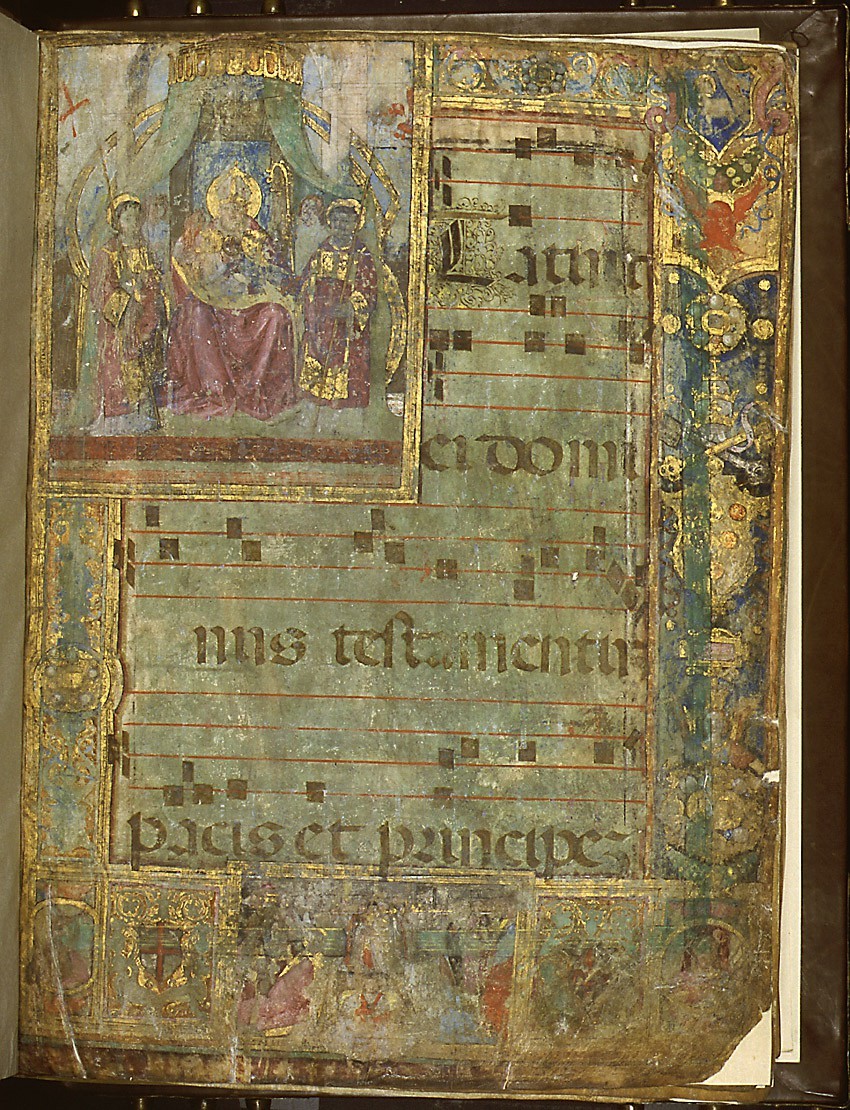 Tatuit
ei domi
nus testamentū
pacis et principez